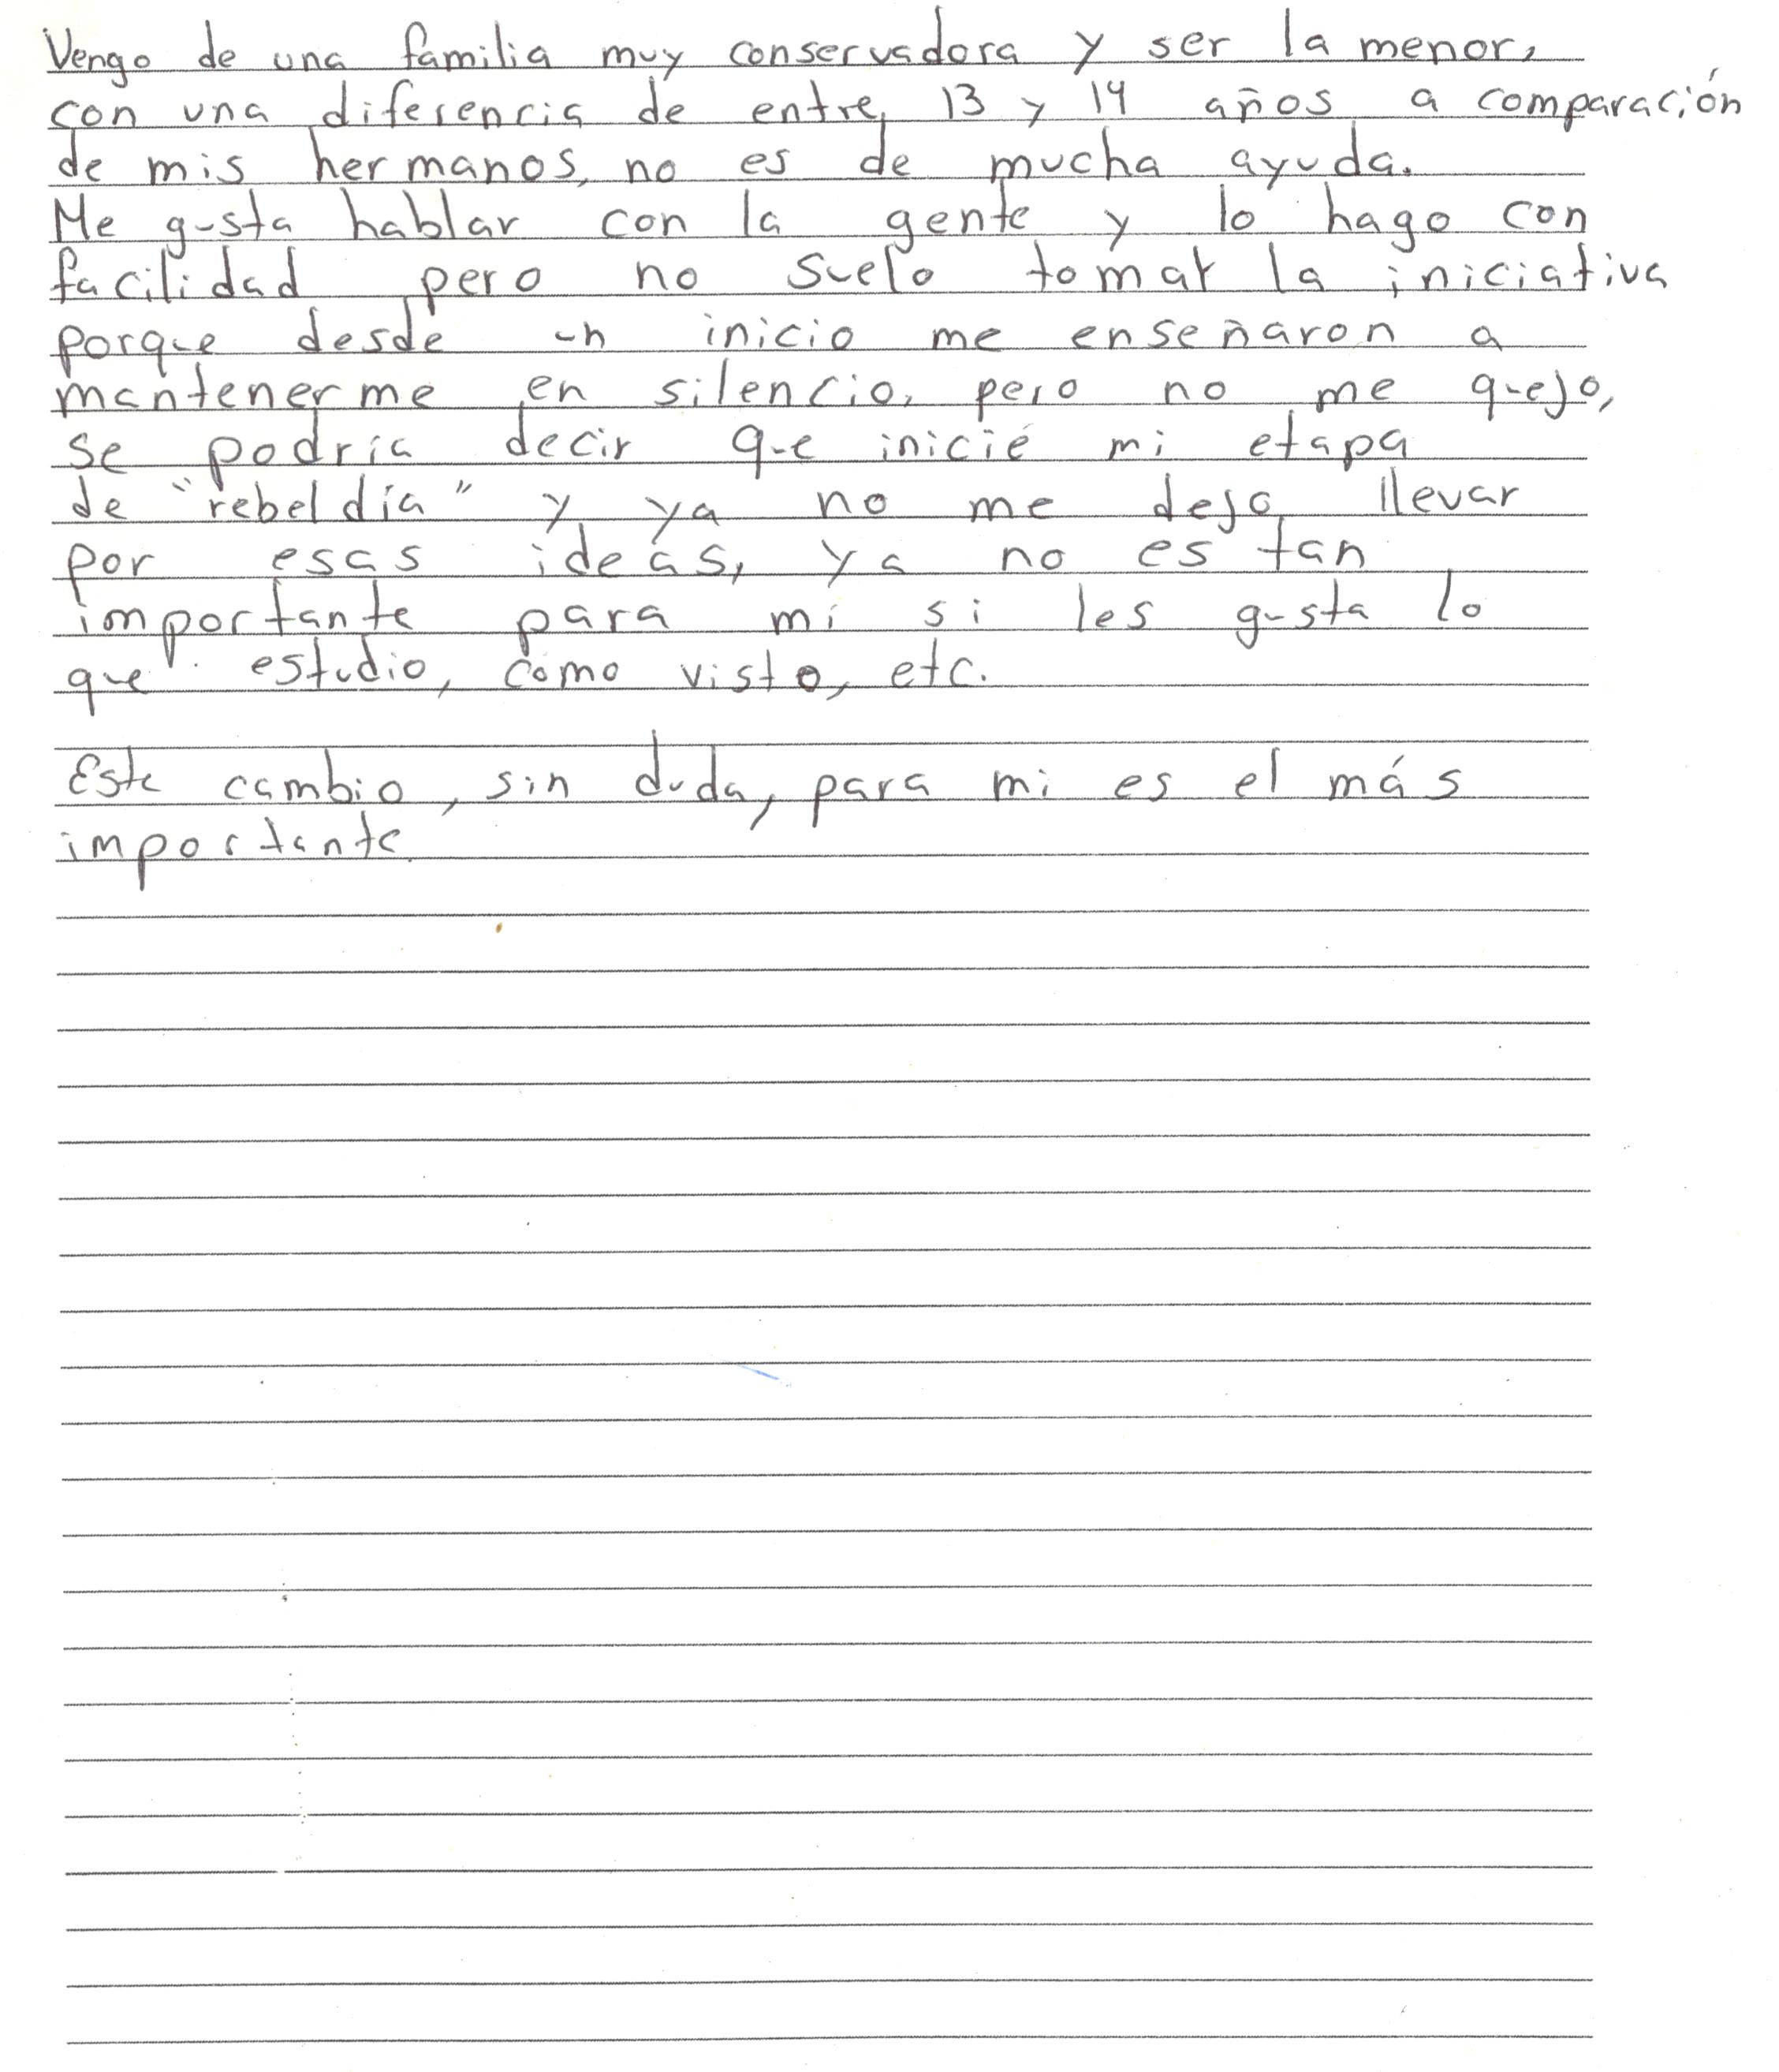 Vengo de una familia muy conservadora y ser la menor,
con una diferencia de entre 13 y 19 años a comparación
de mis hermanos, no es de mucha ayuda.
Me gusta hablar con la gente y lo hago con
facilidad pero no suelo tomar la iniciativa
porque desde un inicio me enseñaron a
mantenerme en silencio, pero no me quejo,
se podría decir que inicié mi etapa
de "rebeldía" y ya no me dejo llevar
por esas ideas, ya no es tan
importante para mí si les gusta lo
que estudio, cómo visto, etc.
Este cambio, sin duda, para mi es el más
importante